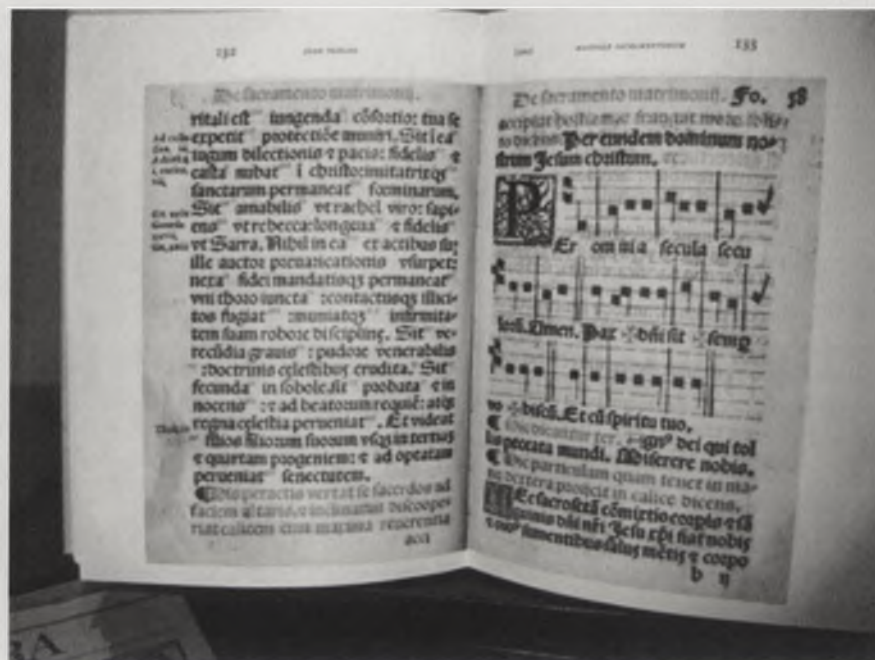 132
De sacramento matrimonij.
ritali est iungenda cōsortio: tua se
expetit protectiōe muniri. Sit i ea
iugum dilectionis ⁊ pacis: fidelis ⁊
casta nubat i christo: imitatrixq̄
sanctarum permaneat foeminarum.
Sit amabilis vt rachel viro: sapi-
ens vt rebecca: longeua ⁊ fidelis
vt Sarra. Nihil in ea ex actibus suis
ille auctor preuaricationis vsurpet:
nexa fidei mandatisq̄ permaneat
vni thoro iuncta: contactusq̄ illici-
tos fugiat: muniatq̄ infirmita-
tem suam robore discipline. Sit ve-
recūdia grauis: pudore venerabilis
: doctrinis celestibus erudita. Sit
fecunda in sobole. sit probata ⁊ in
nocens: ⁊ ad beatorum requiē: atq̄
regna celestia perueniat. Et videat
filios filiorum suorum vsq̄ in tertiam
⁊ quartam progeniem: ⁊ ad optatam
perueniat senectutem.
¶ His peractis vertat se sacerdos ad
faciem altaris, ⁊ inclinatus discooper
riat calicem cum maxima reuerentia
acci
133
De sacramento matrimonij. Fo. 58
accipiat hostiam ac frangat
Per eundem dominum nos-
trum Jesum christum.
PEr omnia secula secu
lorū. Amen. Pax ✠ dñi sit ✠ semp
vo ✠ biscū. Et cū spiritu tuo.
¶ Hic dicatur ter. Agn⁹ dei qui tol
lis peccata mundi. Miserere nobis.
¶ Hic particulam quam tenet in ma-
nu dextera proijcit in calice dicens.
HEc sacrosctā cōmixtio corpis ⁊ sā
guinis dñi nri Jesu xp̄i fiat nobis
⁊ oīb⁹ sumentibus salus mētis ⁊ corpo
h ij
BA